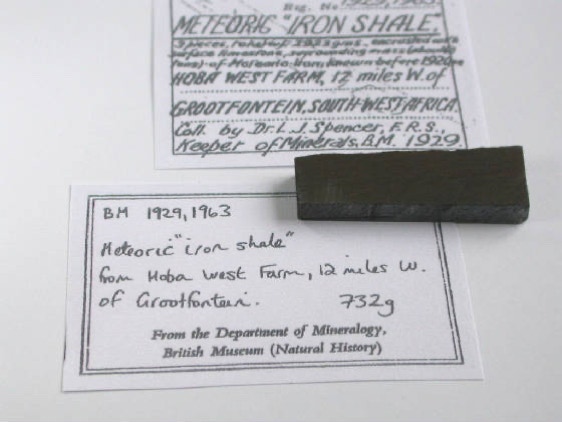 Reg. No 1929,1963
METEORIC "IRON SHALE."
3 pieces, total wt
surface limestone, surrounding mass
tons) of Meteoric Iron, known before 1920
HOBA WEST FARM, 12 miles W. of
GROOTFONTEIN, SOUTH-WEST AFRICA.
Coll. by Dr. L. J. Spencer, F.R.S.,
Keeper of Minerals, B.M. 1929.
BM 1929,1963
Meteoric "iron shale"
from Hoba West Farm, 12 miles W.
of Grootfontein. 732g
From the Department of Mineralogy,
British Museum (Natural History)